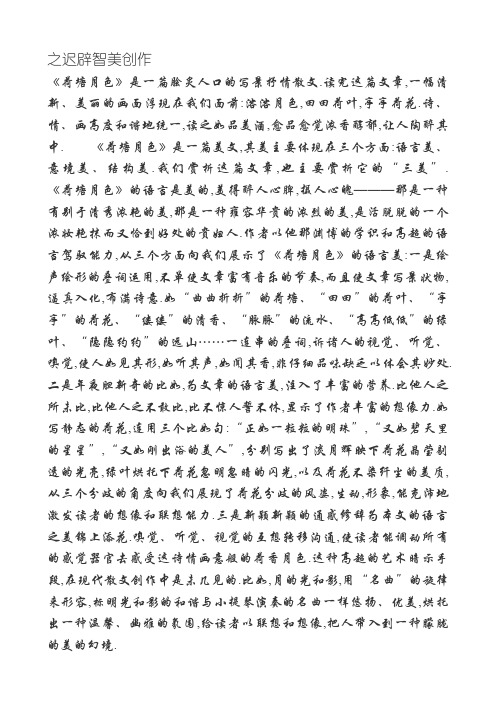 之迟辟智美创作
《荷塘月色》是一篇脍炙人口的写景抒情散文.读完这篇文章,一幅清
新、美丽的画面浮现在我们面前:溶溶月色,田田荷叶,亭亭荷花.诗、
情、画高度和谐地统一,读之如品美酒,愈品愈觉浓香醇郁,让人陶醉其
中. 《荷塘月色》是一篇美文,其美主要体现在三个方面:语言美、
意境美、结构美.我们赏析这篇文章,也主要赏析它的“三美”.
《荷塘月色》的语言是美的,美得醉人心脾,摄人心魄———那是一种
有别于清秀浓艳的美,那是一种雍容华贵的浓烈的美,是活脱脱的一个
浓妆艳抹而又恰到好处的贵妇人.作者以他那渊博的学识和高超的语
言驾驭能力,从三个方面向我们展示了《荷塘月色》的语言美:一是绘
声绘形的叠词运用,不单使文章富有音乐的节奏,而且使文章写景状物,
逼真入化,布满诗意.如“曲曲折折”的荷塘、“田田”的荷叶、“亭
亭”的荷花、“缕缕”的清香、“脉脉”的流水、“高高低低”的绿
叶、“隐隐约约”的远山……一连串的叠词,诉诸人的视觉、听觉、
嗅觉,使人如见其形,如听其声,如闻其香,非仔细品味缺乏以体会其妙处.
二是年夜胆新奇的比如,为文章的语言美,注入了丰富的营养.比他人之
所未比,比他人之不敢比,比不惊人誓不休,显示了作者丰富的想像力.如
写静态的荷花,连用三个比如句:“正如一粒粒的明珠”,“又如碧天里
的星星”,“又如刚出浴的美人”,分别写出了淡月辉映下荷花晶莹剔
透的光亮,绿叶烘托下荷花忽明忽暗的闪光,以及荷花不染纤尘的美质,
从三个分歧的角度向我们展现了荷花分歧的风姿,生动,形象,能充沛地
激发读者的想像和联想能力.三是新颖新颖的通感修辞为本文的语言
之美锦上添花.嗅觉、听觉、视觉的互想转移沟通,使读者能调动所有
的感觉器官去感受这诗情画意般的荷香月色.这种高超的艺术暗示手
段,在现代散文创作中是未几见的.比如,月的光和影,用“名曲”的旋律
来形容,标明光和影的和谐与小提琴演奏的名曲一样悠扬、优美,烘托
出一种温馨、幽雅的氛围,给读者以联想和想像,把人带入到一种朦胧
的美的幻境.